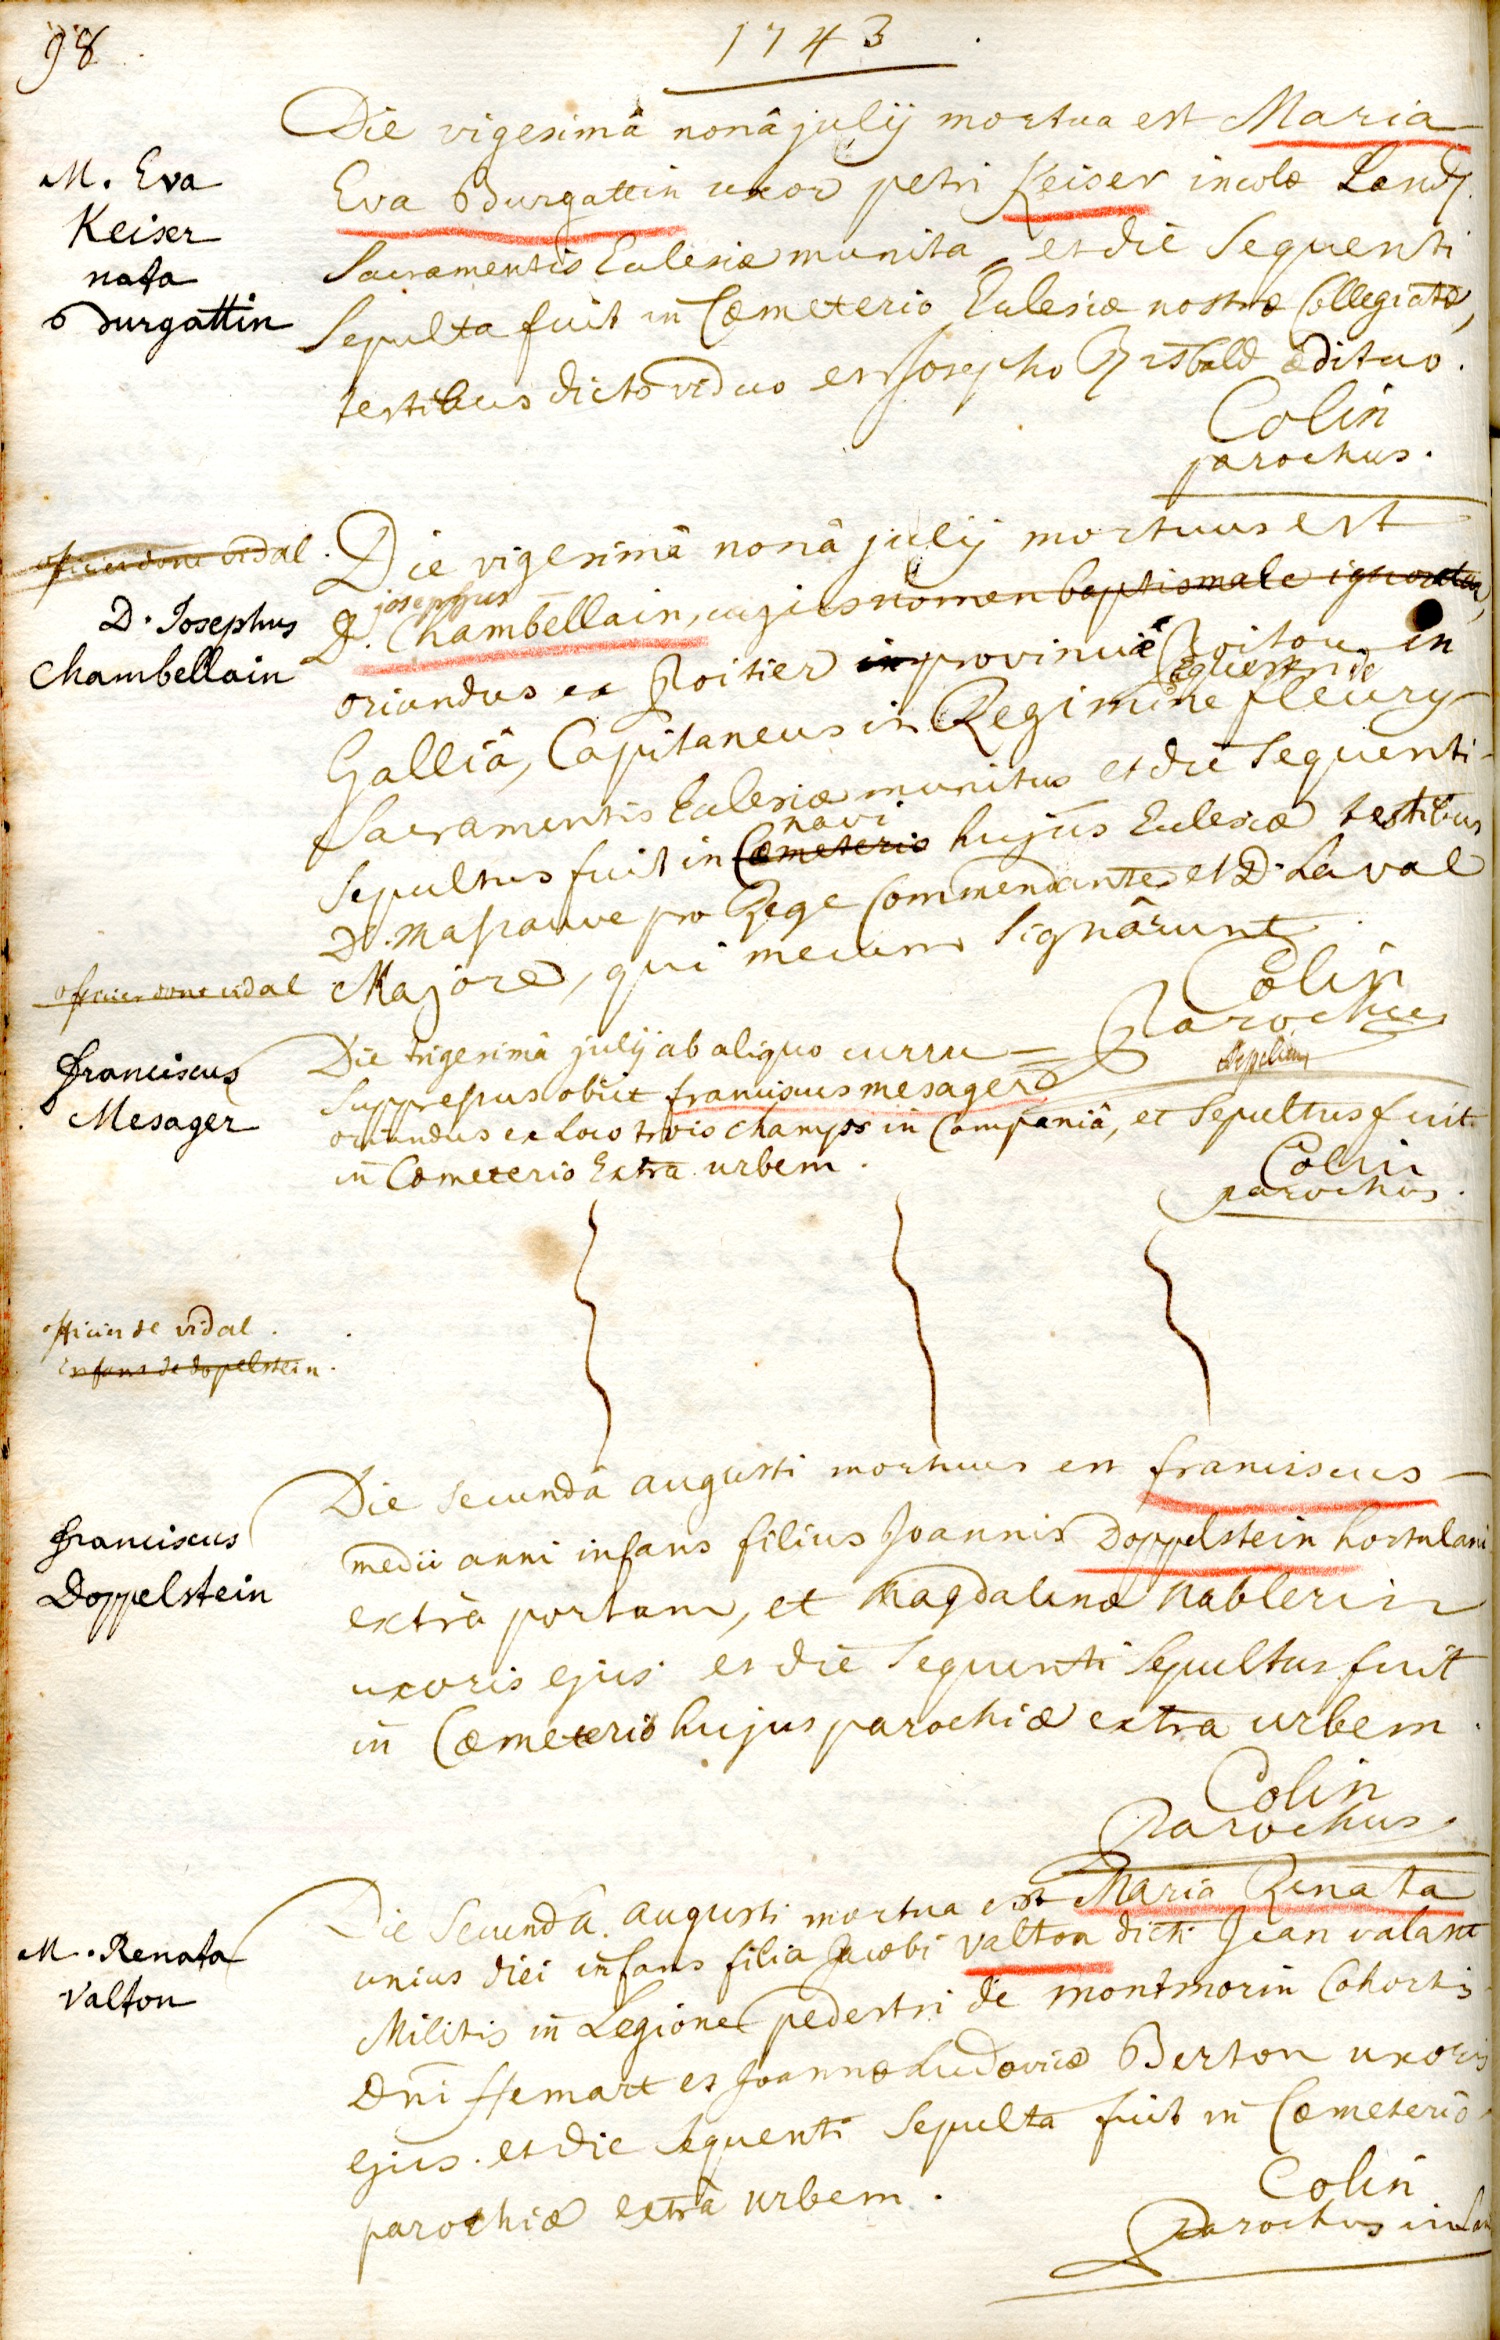 98
1743
Die vigesimâ nonâ julij mortua est Maria
M. Eva
Keiser
nata
Burgattin
Eva Burgattin uxor petri Keiser incolæ Land.
Sacramentis Eclesiæ munita et die Sequenti
Sepulta fuit in Cœmeterio Eclesiæ nostræ Collegiatæ,
testibus dicto viduo et Josepho ædituo.
Colin
parochus.
officier vidal.
D. Josephus
Chambellain
Die vigesimâ nonâ julij mortuus est
josephus
D. Chambellain, cujus nomen baptismale ignoratur,
oriundus ex Poitier in provinciâ Poitou in
Equestri de
Galliâ, Capitaneus in Regimine fleury
Sacramentis Eclesiæ munitus et die Sequenti
navi
Sepultus fuit in Cœmeterio hujus Eclesiæ testibus
D. masauve pro Rege Commendante et D. Laval
Majore, qui mecum Signârunt.
Colin
Parochus
officier vidal
franciscus
Mesager
Die trigesimâ julij ab aliquo curru
Suppressus obiit franciscus mesager
oriundus ex Loco trois champs in Campaniâ, et Sepultus fuit
in Cœmeterio Extra urbem.
Colin
parochus.
officier de vidal.
Enfans de dopelstein.
franciscus
Doppelstein
Die Secundâ augusti mortuus est franciscus
medii anni infans filius Joannis Doppelstein hortulani
extrà portam, et Magdalenæ Nablerin
uxoris ejus et die Sequenti Sepultus fuit
in Cœmeterio hujus parochiæ extra urbem.
Colin
Parochus
M. Renata
Valton
Die Secundâ augusti mortua est Maria Renata
unius diei infans filia Jacobi Valton dicti Jean valant
Militis in Legione pedestri de montmorin Cohortis
Dni Hemart et Joannæ Ludovicæ Berton uxoris
ejus. et die Sequenti Sepulta fuit in Cœmeterio
parochiæ extrà urbem.
Colin
Parochus in Lan